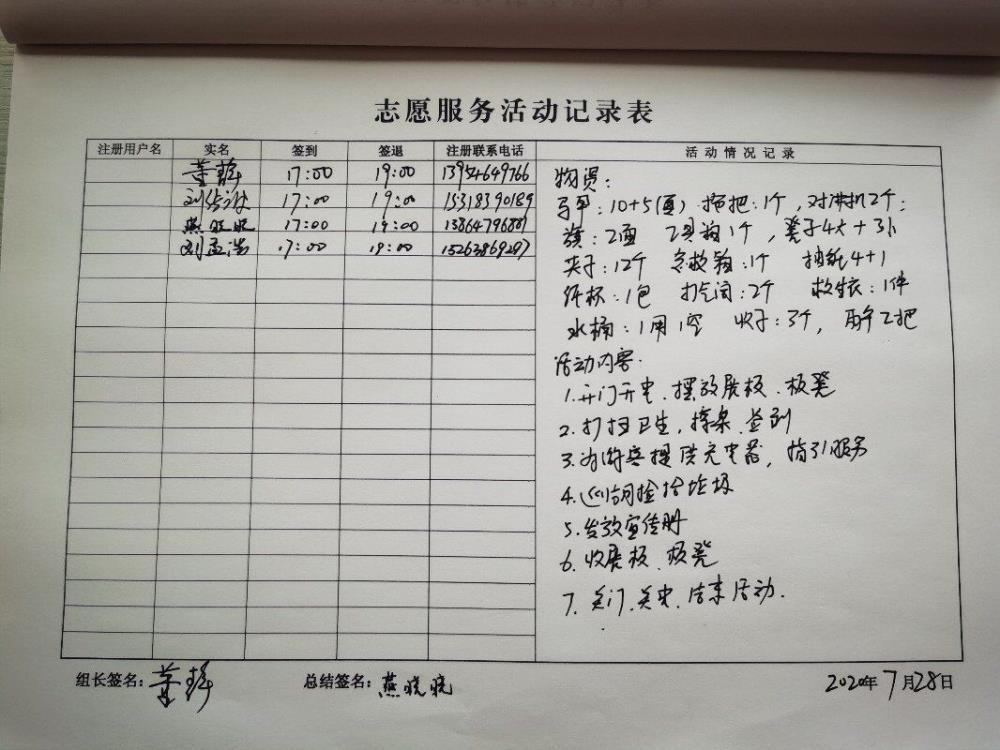 志愿服务活动记录表
注册用户名 实名 签到 签退 注册联系电话 活动情况记录
董静 17:00 19:00 13954649766
17:00 19:00 15318390189
燕晓晓 17:00 19:00 13864796881
刘孟浩 17:00 19:00 15263869287
物资:
马甲:10+5(夏) 拖把:1个,对讲机2个;
旗:2面 工具箱1个,凳子4大+3小
夹子:12个 急救箱:1个 抽纸4+1
纸杯:1包 打气筒:2个 救生衣:1件
水桶:1用1空 3个, 2把
活动内容.
1.开门开电、摆放展板、板凳
2.打扫卫生,擦桌、签到
3.为游客提供充电器,指引服务
4.巡湖捡拾垃圾
5.发放宣传册
6.收展板、板凳
7.关门、关电、结束活动.
组长签名:董静 总结签名:燕晓晓 2020年7月28日